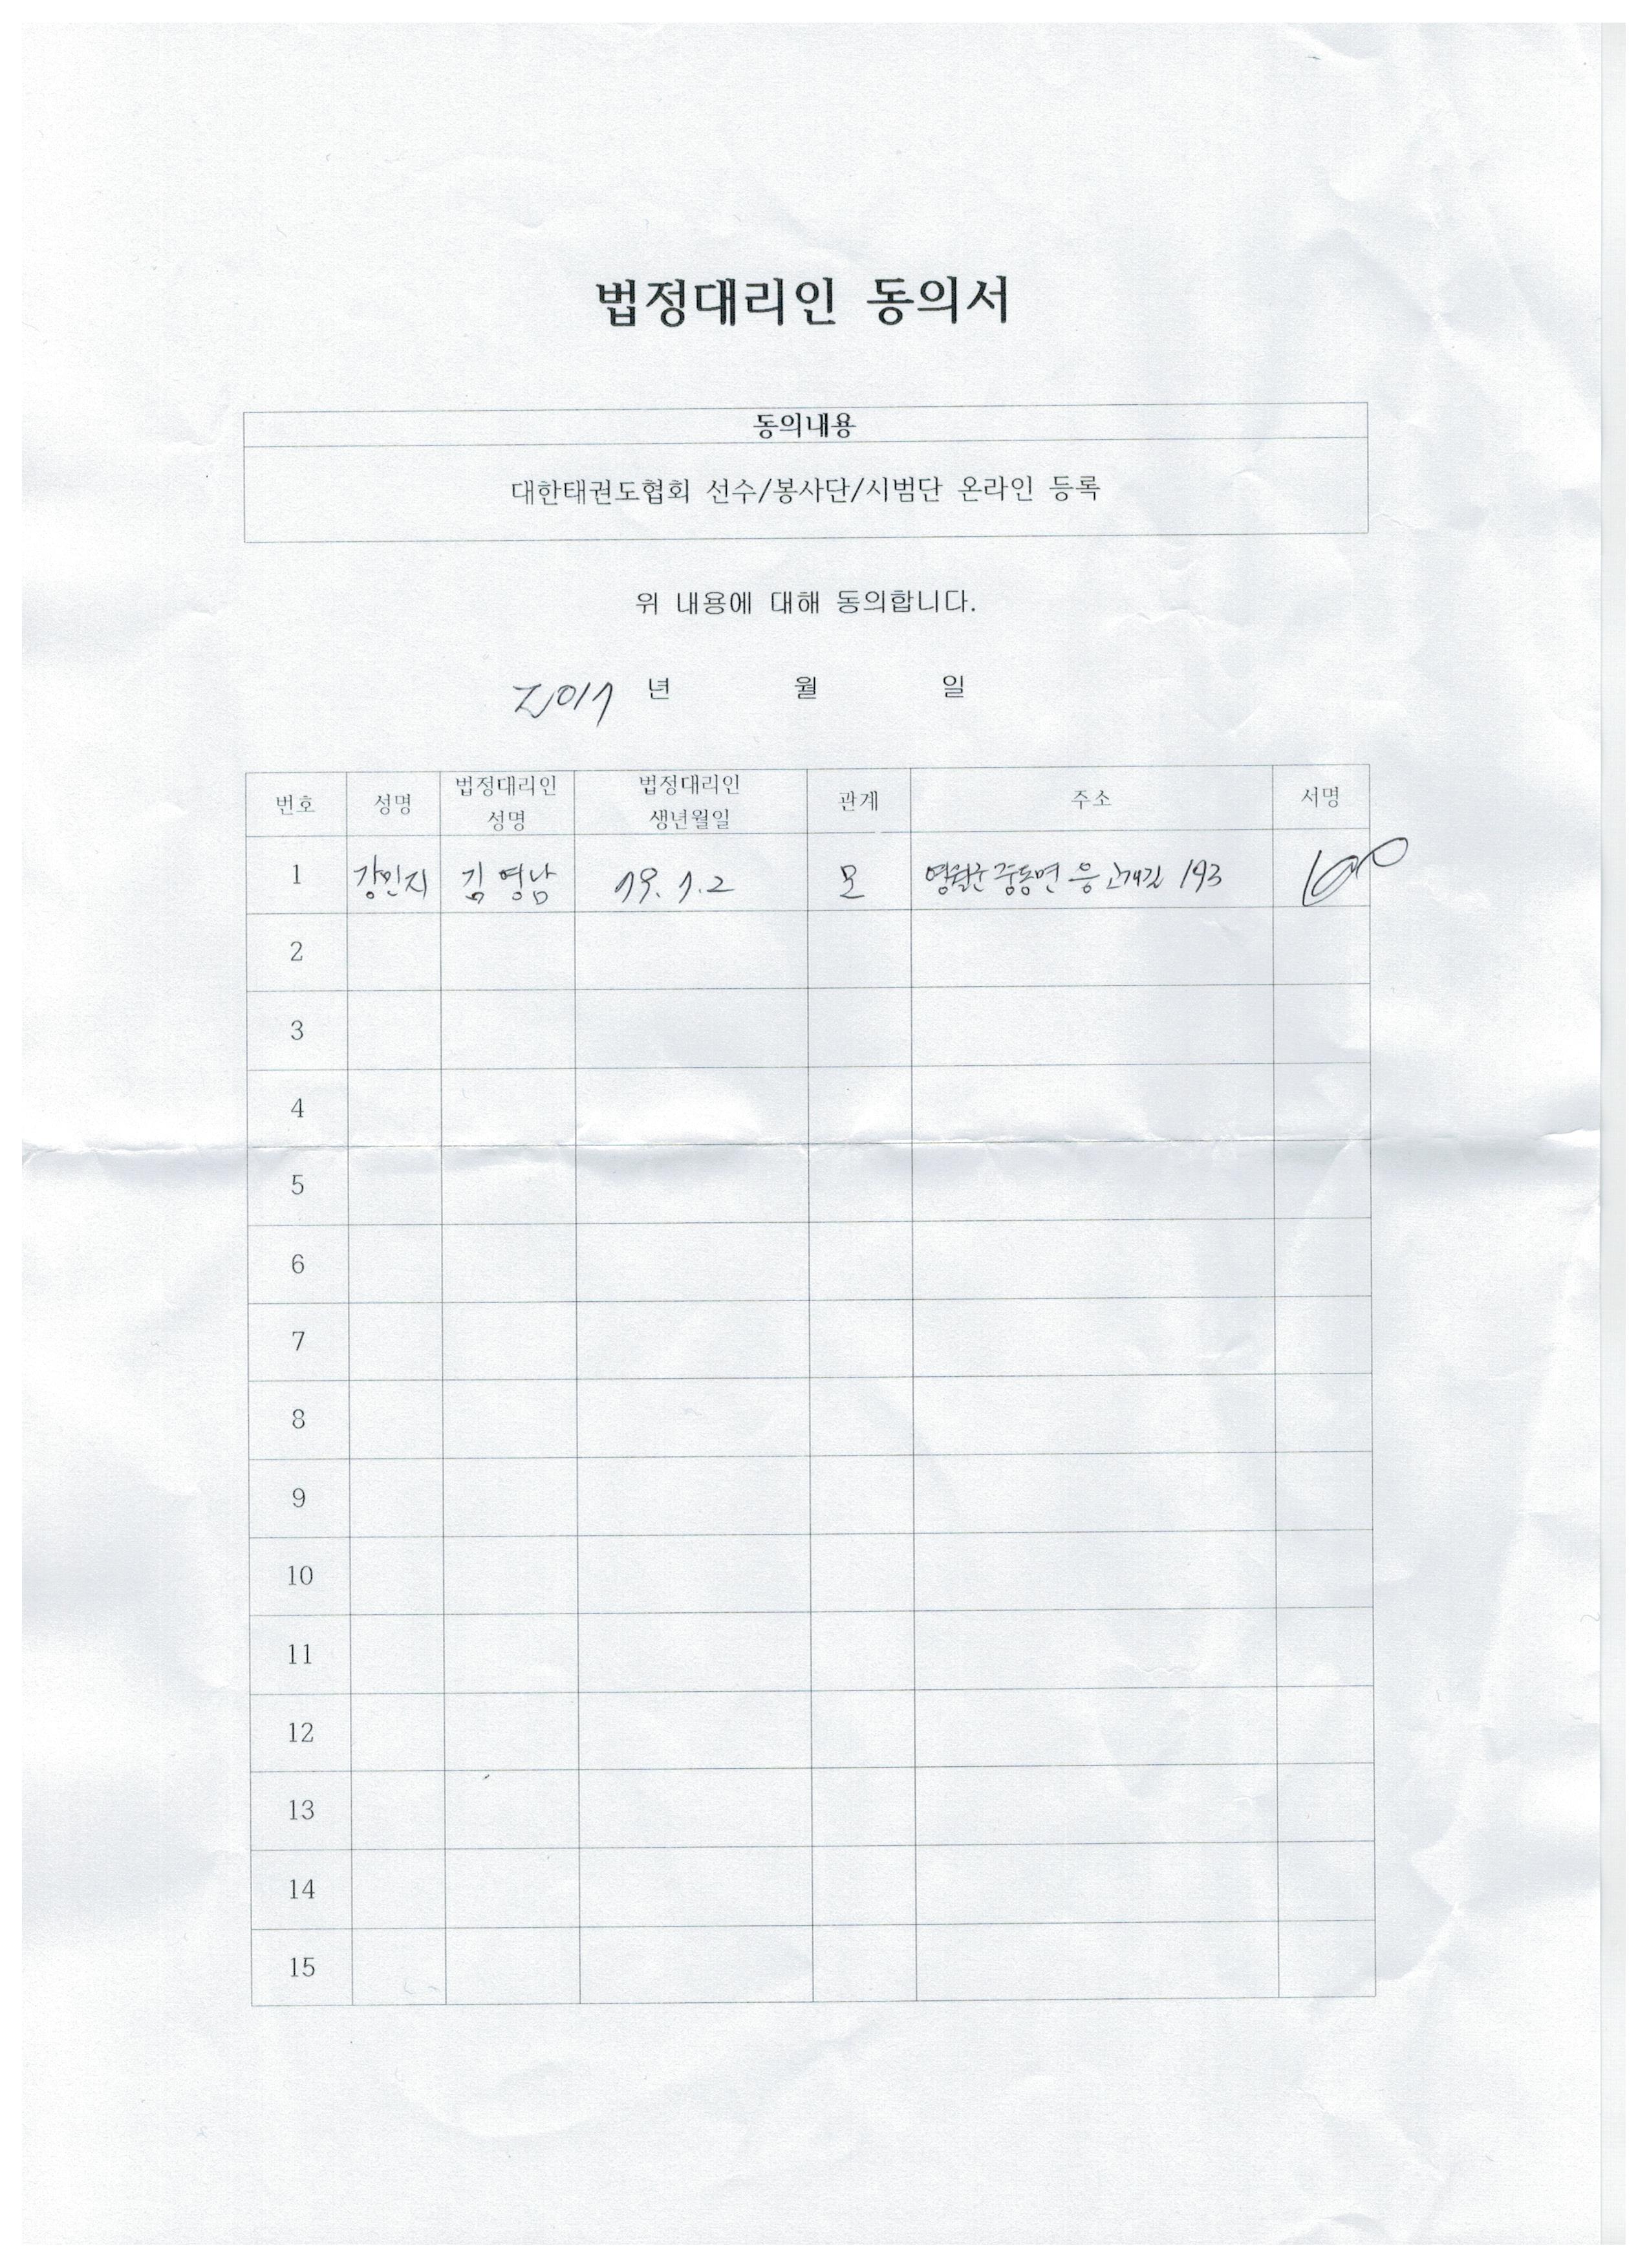 법정대리인 동의서
동의내용
대한태권도협회 선수/봉사단/시범단 온라인 등록
위 내용에 대해 동의합니다.
2017 년 월 일
번호 성명 법정대리인 성명 법정대리인 생년월일 관계 주소 서명
1 강민지 김영남 79. 7. 2 모 영월군 중동면 193
2
3
4
5
6
7
8
9
10
11
12
13
14
15